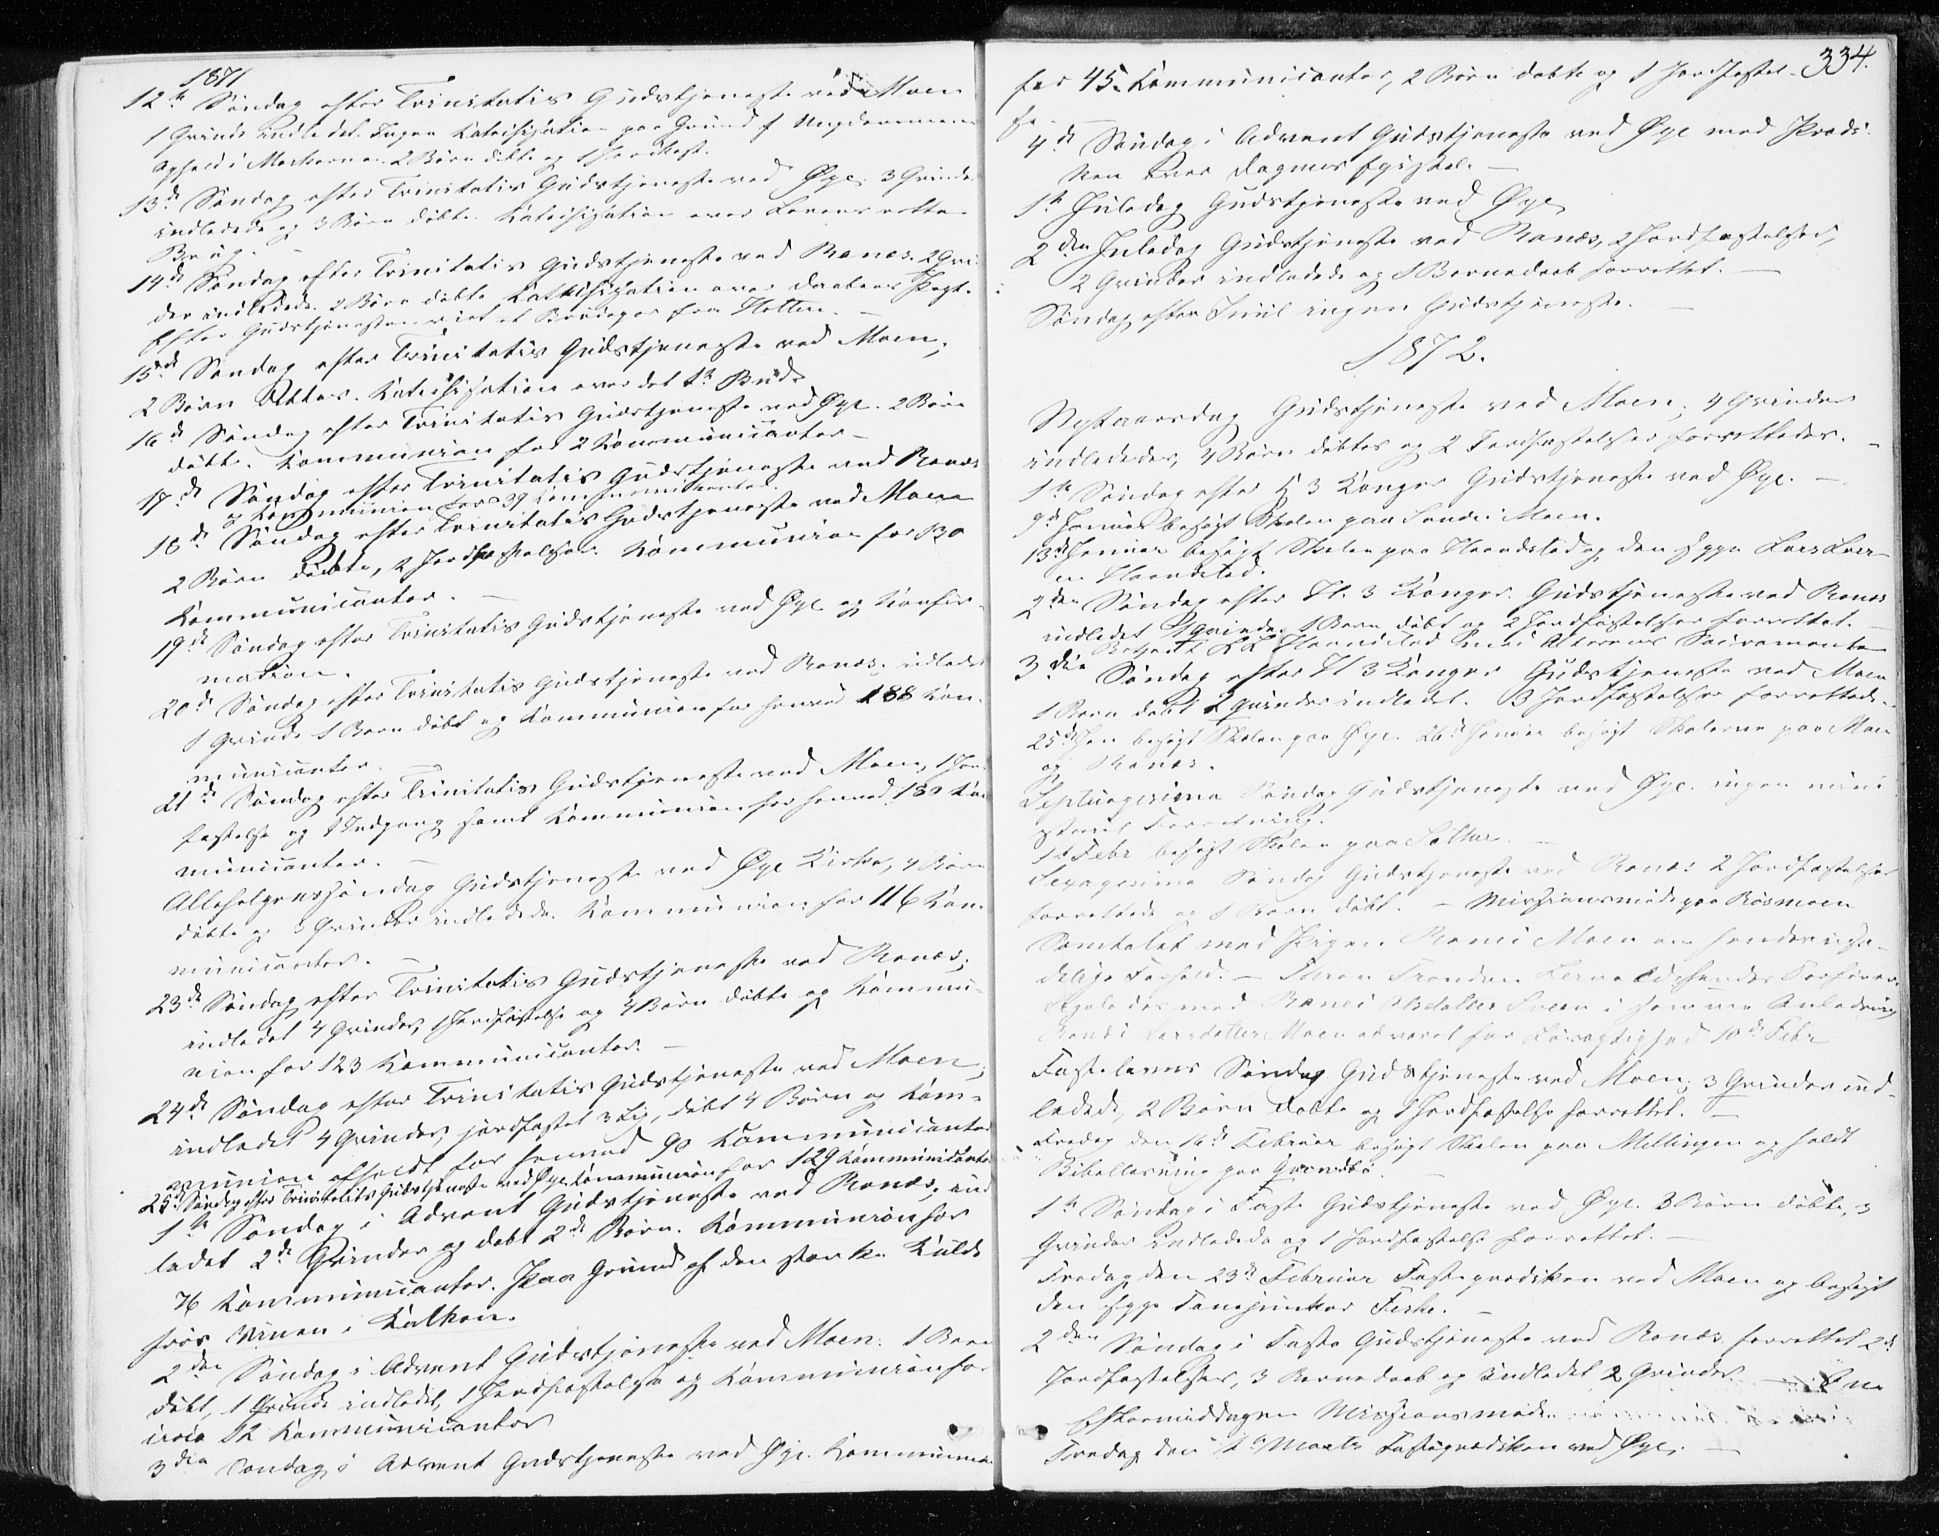 1871
12te Søndag efter Trinitatis Gudstjeneste ved Moen
1 Qvinde indledet. Ingen Katechisation paa Grund af Ungdommens
Ophold i Markerne. 2 Børn døbte og 1 Jordfæst.
13de Søndag efter Trinitatis Gudstjeneste ved Øye. 3 Qvinder
indledede og 3 Børn døbte. Katechisation over Lovens rette
Brug.
14de Søndag efter Trinitatis Gudstjeneste ved Ranes. 2 Qvin
der indledede. 2 Børn døbte Katechisation over Daabens Pagt.
Efter Gudstjenesten viet et Brudepar fra Holten. —
15de Søndag efter Trinitatis Gudstjeneste ved Moen,
2 Børn døbtes. Katechisation over det 1te Bud.
16de Søndag efter Trinitatis Gudstjeneste ved Øye. 2 Børn
døbte. Kommunion for 2 Kommunicanter —
17de Søndag efter Trinitatis Gudstjeneste ved Ranes
og Kommunion for 39 Kommunicanter.
18de Søndag efter Trinitatis Gudstjeneste ved Moen
2 Børn døbte, 2 Jordfæstelser. Kommunion for 130
Kommunicanter. —
19de Søndag efter Trinitatis Gudstjeneste ved Øye og Konfir-
mation.
20de Søndag efter Trinitatis Gudstjeneste ved Ranes, indledet
1 Qvinde 1 Barn døbt og Kommunion for henved 188 Kom-
municanter. —
21de Søndag efter Trinitatis Gudstjeneste ved Moen, 1 Jord
fæstelse og 1 Indgang samt Kommunion for henved 130 Kom
municanter. —
Allehelgenssøndag Gudstjeneste ved Øye Kirke, 4 Børn
døbte og 3 Qvinder indledede. Kommunion for 116 Kom
municanter. —
23de Søndag efter Trinitatis Gudstjeneste ved Ranes;
indledet 4 Qvinder, 1 Jordfæstelse og 4 Børn døbte og Kommu-
nion for 123 Kommunicanter. —
24de Søndag efter Trinitatis Gudstjeneste ved Moen,
indledet 4 Qvinder, jordfæstet 3 Lig, døbt 4 Børn og Kom-
munion afholdt for henved 90 Kommunicanter
25de Søndag efter Trinitatis Gudstjeneste ved Øye Kommunion for 129 Kommunicanter
1te Søndag i Advent Gudstjeneste ved Ranes, ind
ledet 2de Qvinder og døbt 2de Børn. Kommunion for
76 Kommunicanter. Paa Grund af den stærke Kulde
frøs Vinen i Kalken.
2den Søndag i Advent Gudstjeneste ved Moen. 1 Barn
døbt, 1 Qvinde indledet, 1 Jordfæstelse og Kommunion for
circa 12 Kommunicanter
3die Søndag i Advent Gudstjeneste ved Øye. Kommunion
334.
for 45 Kommunicanter, 2 Børn døbte og 1 Jordfæstel-
se. —
4de Søndag i Advent Gudstjeneste ved Øye med Prædi-
ken over Dagens Epistel. —
1te Juledag Gudstjeneste ved Øye
2den Juledag Gudstjeneste ved Ranes, 2 Jordfæstelser,
2 Qvinder indledede og 1 Barnedaab forrettet. —
Søndag efter Juul ingen Gudstjeneste. —
1872.
Nytaarsdag Gudstjeneste ved Moen; 4 Qvinder
indlededes, 4 Børn døbtes og 2 Jordfæstelser forrettedes. —
1te Søndag efter H 3 Konger Gudstjeneste ved Øye. —
9de Januar besøgt Skolen paa Moen.
13de Januar besøgt Skolen paa Haandstad og den syge Lars
Haandstad.
2den Søndag efter H. 3 Konger Gudstjeneste ved Ranes
indledet 1 Qvinde, 1 Barn døbt og 2 Jordfæstelser forrettet. —
Betjent Haandstad med Alterens Sacramente
3die Søndag efter H 3 Konger Gudstjeneste ved Moen
1 Barn døbt 2 Qvinder indledet. 3 Jordfæstelser forrettede. —
25de Jan besøgt Skolen paa Øye. 26de Januar besøgt Skolerne paa Moen
og Ranes.
Septuagesima Søndag Gudstjeneste ved Øye. ingen mini
steriel Forretning.
1te Febr besøgt Skolen paa —
Sexagesima Søndag Gudstjeneste ved Ranes 2 Jordfæstelser
forrettede og 1 Barn døbt. — Missionsmøde paa Røsmoen
Samtalet med Pigen Moen om hendes usæ-
delige Forhold. —
Ligeledes med i samme Anledning
Larsdatter Moen advaret for Løsagtighed 10de Febr
Fastelavns Søndag Gudstjeneste ved Moen, 3 Qvinder ind-
ledede, 2 Børn døbte og 1 Jordfæstelse forrettet. —
Fredag den 16de Februar besøgt Skolen paa Mellingen og holdt
Bibellæsning paa
1te Søndag i Faste Gudstjeneste ved Øye. 3 Børn døbte, 3
Qvinder indledede og 1 Jordfæstelse forrettet. —
Fredag den 23de Februar Fasteprædiken ved Moen og besøgt
den syge Fanejunker Feske. —
2den Søndag i Faste Gudstjeneste ved Ranes forrettet 2de
Jordfæstelser, 3 Barnedaab og indledet 2 Qvinder. — Om
Eftermiddagen Missionsmøde
Fredag den 1te Marts Fasteprædiken ved Øye. —